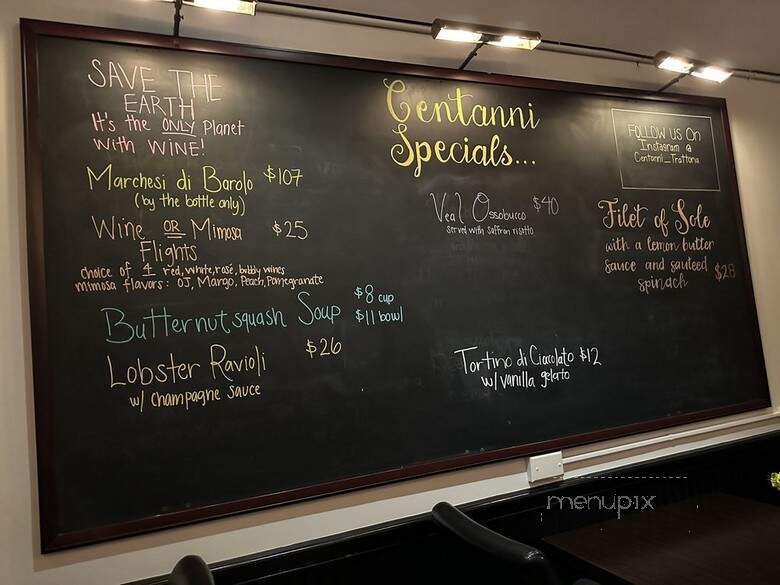 SAVE THE
EARTH
It's the ONLY Planet
with WINE!
Marchesi di Barolo $107
(by the bottle only)
Wine OR Mimosa $25
Flights
choice of 4 red, white, rosé, bubbly wines
mimosa flavors: OJ, Mango, Peach, Pomegranate
Butternut squash Soup $8 cup
$11 bowl
Lobster Ravioli $26
w/ champagne sauce
Centanni
Specials...
Veal Ossobucco $40
served with saffron risotto
Tortino di Cioccolato $12
w/ vanilla gelato
FOLLOW US On
Instagram @
Centanni_Trattoria
Filet of Sole
with a lemon butter
sauce and sauteed $28
spinach
menupix